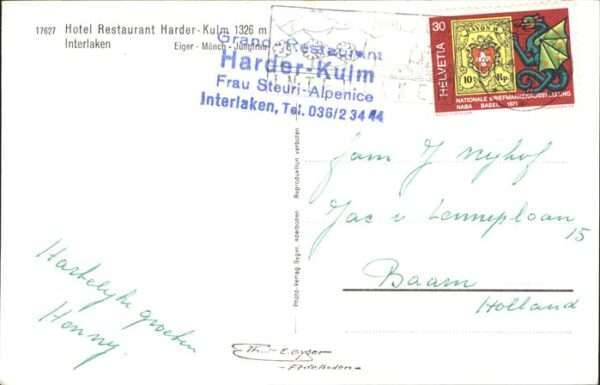 17627 Hotel Restaurant Harder-Kulm 1326 m
Interlaken Eiger - Mönch - Jungfrau
Grand-Restaurant
Harder-Kulm
Frau Steuri-Alpenice
Interlaken, Tel. 036/2 34 44
30
HELVETIA
10 Rp
NATIONALE BRIEFMARKENAUSSTELLUNG
NABA BASEL 1971
Fam J Nyhof
Jac v Lenneplaan
15
Baarn
Holland
Hartelijke groeten
Henny.
Photo-Verlag Gyger, Adelboden Reproduktion verboten
Phot. E. Gyger
- Adelboden -